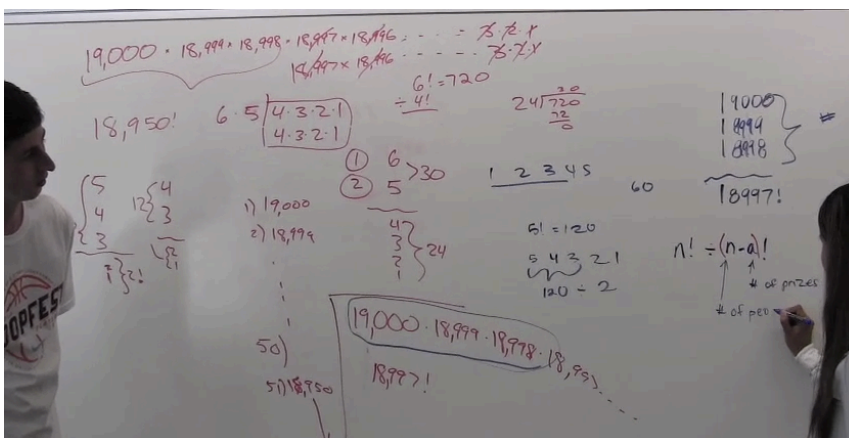 19,000 · 18,999 · 18,998 · 18,997 × 18,996 . - - - - 3 · 2 · 1
18,997 × 18,996 - - - - - 3 · 2 · 1
18,950!
6 · 5 | 4 · 3 · 2 · 1
4 · 3 · 2 · 1
6! = 720
÷ 4!
30
24 720
72
0
19000
18999
18998
18997!
5
4
3
2
1
2!
12
4
3
2
1
1) 19,000
2) 18,999
50)
51) 18,950
① 6
② 5
>30
4
3
2
1
24
1 2 3 4 5
60
5! = 120
5 4 3 2 1
120 ÷ 2
n! ÷ (n-a)!
# of prizes
# of peo
19,000 · 18,999 · 18,998 · 18,997 . . . .
18,997!
OOPFEST